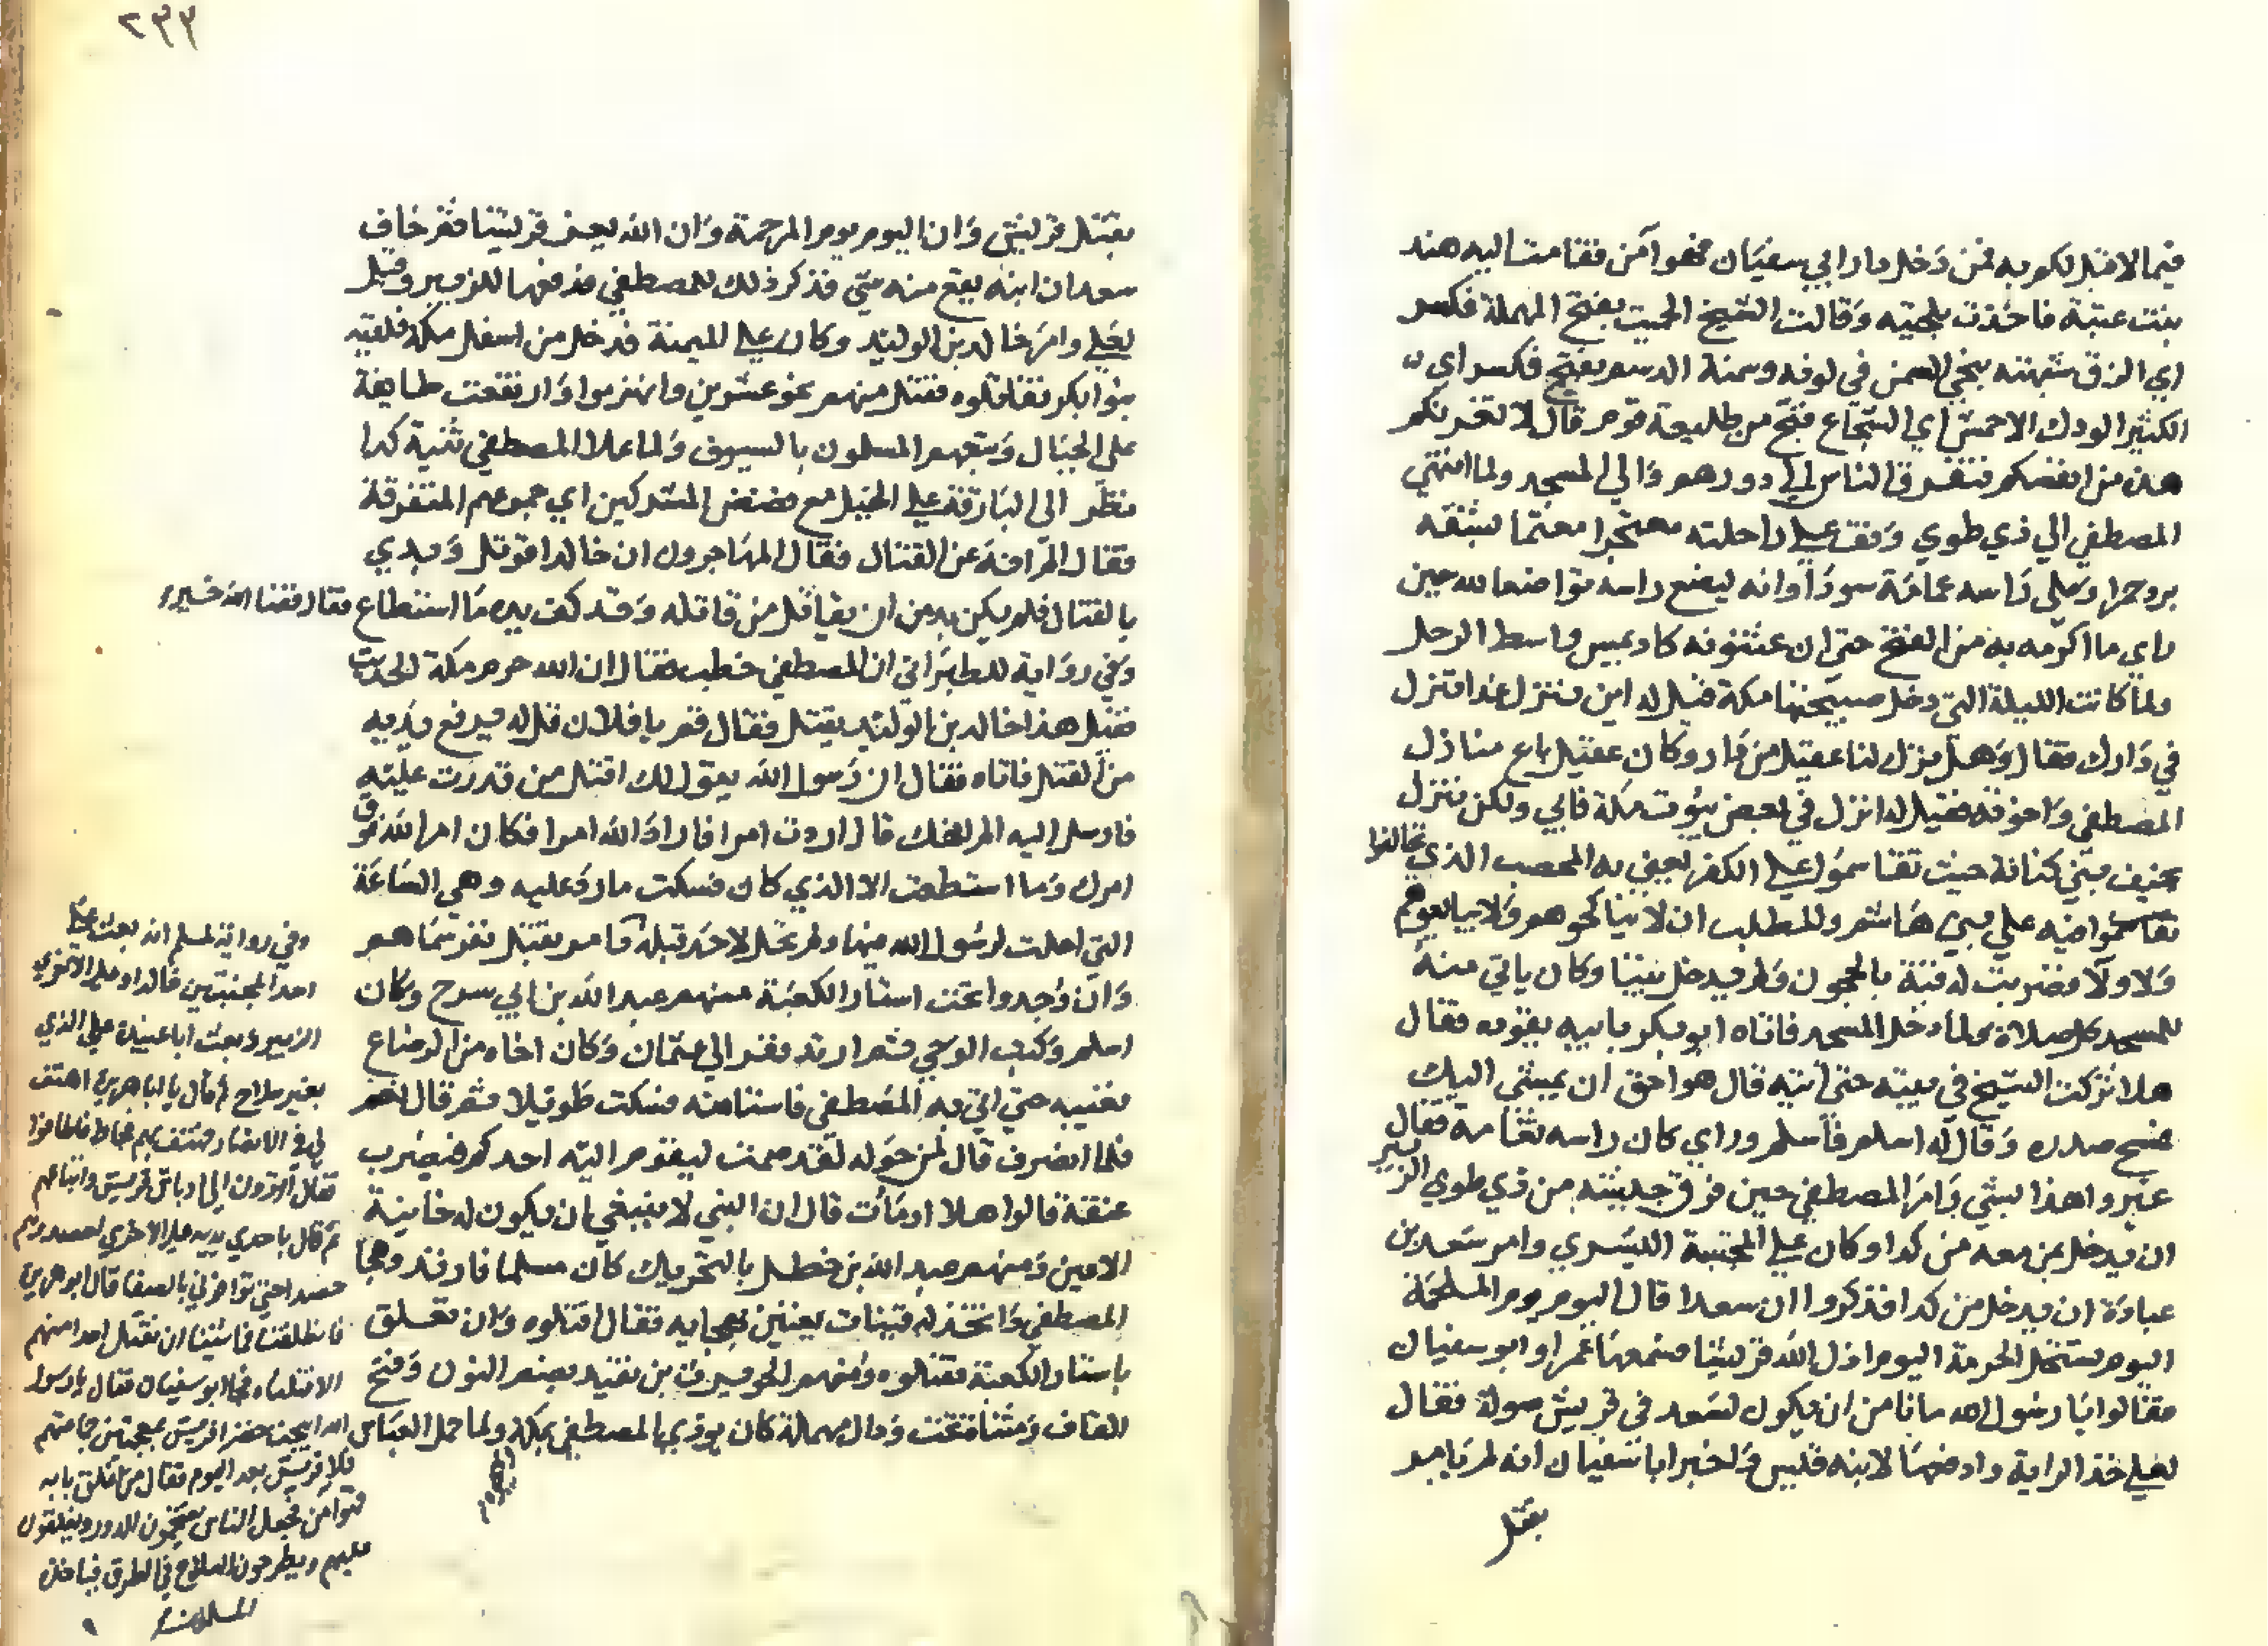 فيما لا قبل لكم به فمن دخل دار ابي سفيان فهو آمن فقامت اليه هند
بنت عتبة فاخذت بلحيته وقالت الشيخ الحميت بفتح المهملة فكسر
اي الزق شبهته بنحي السمن في لونه وسمنه الدسم بفتح فكسر اي
الكثير الودك الاحمش اي الشجاع قبح من طليعة قوم قال لا تغرنكم
هذه من انفسكم فتفرق الناس الي دورهم والي المسجد ولما انتهي
المصطفي الي ذي طوي وقف علي راحلته معتجرا معتما بشقة
برد حمرا وعلي راسه عمامة سودآ وانه ليضع راسه تواضعا لله حين
راي ما اكرمه به من الفتح حتي ان عثنونه كاد يمس واسط الرحل
ولما كانت الليلة التي دخل صبيحتها مكة قيل له اين تنزل غدا تنزل
في دارك فقال وهل ترك لنا عقيل من دار وكان عقيل باع منازل
المصطفي واخوته فقيل له انزل في بعض بيوت مكة فابي ولكن ننزل
بخيف بني كنانة حيث تقاسموا علي الكفر يعني به المحصب الذي تحالفوا
تقاسموا فيه علي بني هاشم والمطلب ان لا يناكحوهم ولا يبايعوهم
ولا ولا فضربت له قبة بالحجون ولم يدخل بيتا وكان ياتي منه
للمسجد كل صلاة ولما دخل المسجد فاتاه ابو بكر بابيه يقوده فقال
هلا تركت الشيخ في بيته حتي آتيه قال هو احق ان يمشي اليك
فمسح صدره وقال له اسلم فاسلم وراي كان راسه ثغامة فقال
غيروا هذا بشي وامر المصطفي حين فرق جيشه من ذي طوي الزبير
ان يدخل بمن معه من كدا وكان علي المجنبة اليسري وامر سعد بن
عبادة ان يدخل من كدا فذكروا ان سعدا قال اليوم يوم الملحمة
اليوم تستحل الحرمة اليوم اذل الله قريشا فسمعها عمر او ابو سفيان
فقالوا يا رسول الله ما نامن ان يكون لسعد في قريش صولة فقال
لعلي خذ الراية وادفعها لابنه قيس واخبر ابا سفيان انه لم يامر
بقتل
٢٣٣
بقتل قريش وان اليوم يوم المرحمة وان الله يعز قريشا فقر خاف
سعد ان ابنه يقع منه شي فذكر ذلك للمصطفي فدفعها للزبير وقيل
لعلي وامر خالد بن الوليد وكان علي الميمنة فدخل من اسفل مكة فلقيه
بنوا بكر فقاتلوه فقتل منهم نحو عشرين وانهزموا وارتفعت طايفة
علي الجبال وتبعهم المسلمون بالسيوف ولما علا المصطفي ثنية كدا
نظر الي البارقة علي الجبل مع فضض المشركين اي جموعهم المتفرقة
فقال الم انه عن القتال فقال المهاجرون ان خالدا قوتل وبدي
بالقتال فلم يكن بد من ان يقاتل من قاتله وقد كف يده ما استطاع فقال قضا الله خير
وفي رواية للطبراني ان المصطفي خطب فقال ان الله حرم مكة الحديث
فقيل هذا خالد بن الوليد يقتل فقال قم يا فلان قل له فيرفع يديه
من القتل فاتاه فقال ان رسول الله يقول لك اقتل من قدرت عليه
فارسل اليه الم انهك قال اردت امرا فاراد الله امرا فكان امر الله فوق
امرك وما استطعت الا الذي كان فسكت ما رد عليه وهي الساعة
التي احلت لرسول الله فيها ولم تحل لاحد قبله وامر بقتل نفر سماهم
وان وجدوا تحت استار الكعبة منهم عبد الله بن ابي سرح وكان
اسلم وكتب الوحي ثم ارتد ففر الي عثمان وكان اخاه من الرضاع
فغيبه حتي اتي به المصطفي فاستامنه فسكت طويلا ثم قال نعم
فلما انصرف قال لمن حوله لقد صمت ليقوم اليه احدكم فيضرب
عنقه قالوا هلا اومأت قال ان النبي لا ينبغي ان يكون له خاينة
الاعين ومنهم عبد الله بن خطل بالتحريك كان مسلما فارتد وهجا
المصطفي واتخذ له قينات يغنين بهجايه فقال اقتلوه وان تعلق
باستار الكعبة فقتلوه ومنهم الحويرث بن نقيد بضم النون وفتح
القاف ومثناة تحت ودال مهملة كان يوذي المصطفي بمكة ولما حمل العباس
وفي رواية لمسلم انه بعث علي
احد المجنبتين خالدا وعلي الاخري
الزبير وبعث ابا عبيدة علي الذي
بغير سلاح ثم قال يا ابا هريرة اهتف
لي في الانصار فهتف بهم فجاوا فاطافوا
فقال اترون الي اوباش قريش واتباعهم
ثم قال باحدي يديه علي الاخري احصدوهم
حصدا حتي توافوني بالصفا قال ابو هريرة
فانطلقنا فما شينا ان نقتل احدا منهم
الا قتلناه فجا ابو سفيان فقال يا رسول
الله ابيحت خضرا قريش
فلا قريش بعد اليوم فقال من اغلق بابه
فهو آمن فجعل الناس يقتحمون الدور ويغلقون
عليهم ويطرحون السلاح في الطرق فياخذه
المسلمون